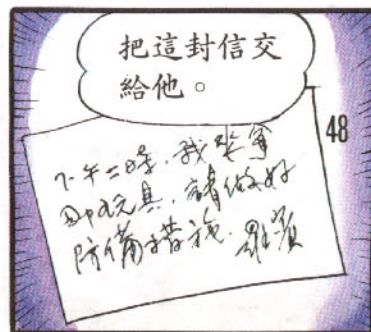 把這封信交
給他。
48
下午二時，我
玩具，請做好
防備措施．羅